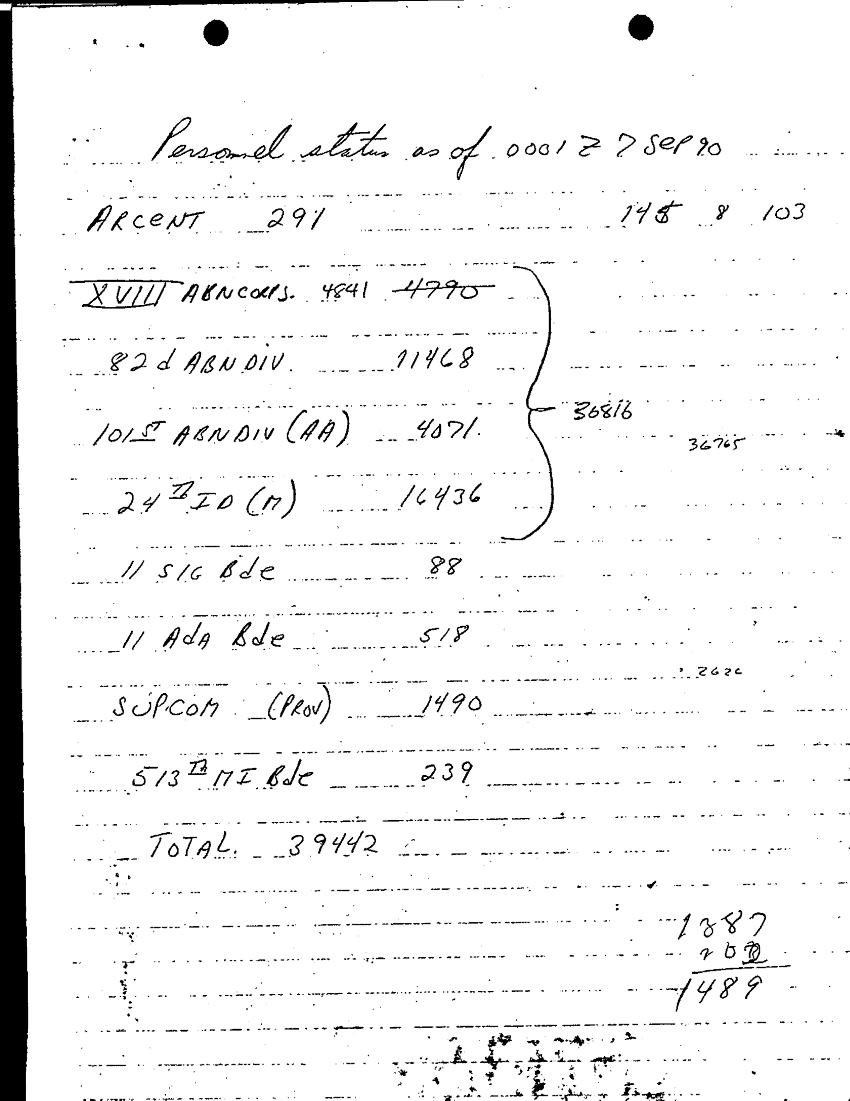 Personnel status as of 0001 Z 7 SEP 90
ARCENT 291 145 8 103
XVIII ABNCORPS. 4841 4790
82d ABN DIV. 11468
101ST ABN DIV (AA) 4071
36816
36765
24TH ID (M) 16436
11 SIG Bde 88
11 AdA Bde 518
2626
SUPCOM (PROV) 1490
513TH MI Bde 239
TOTAL. 39442
1387
1489